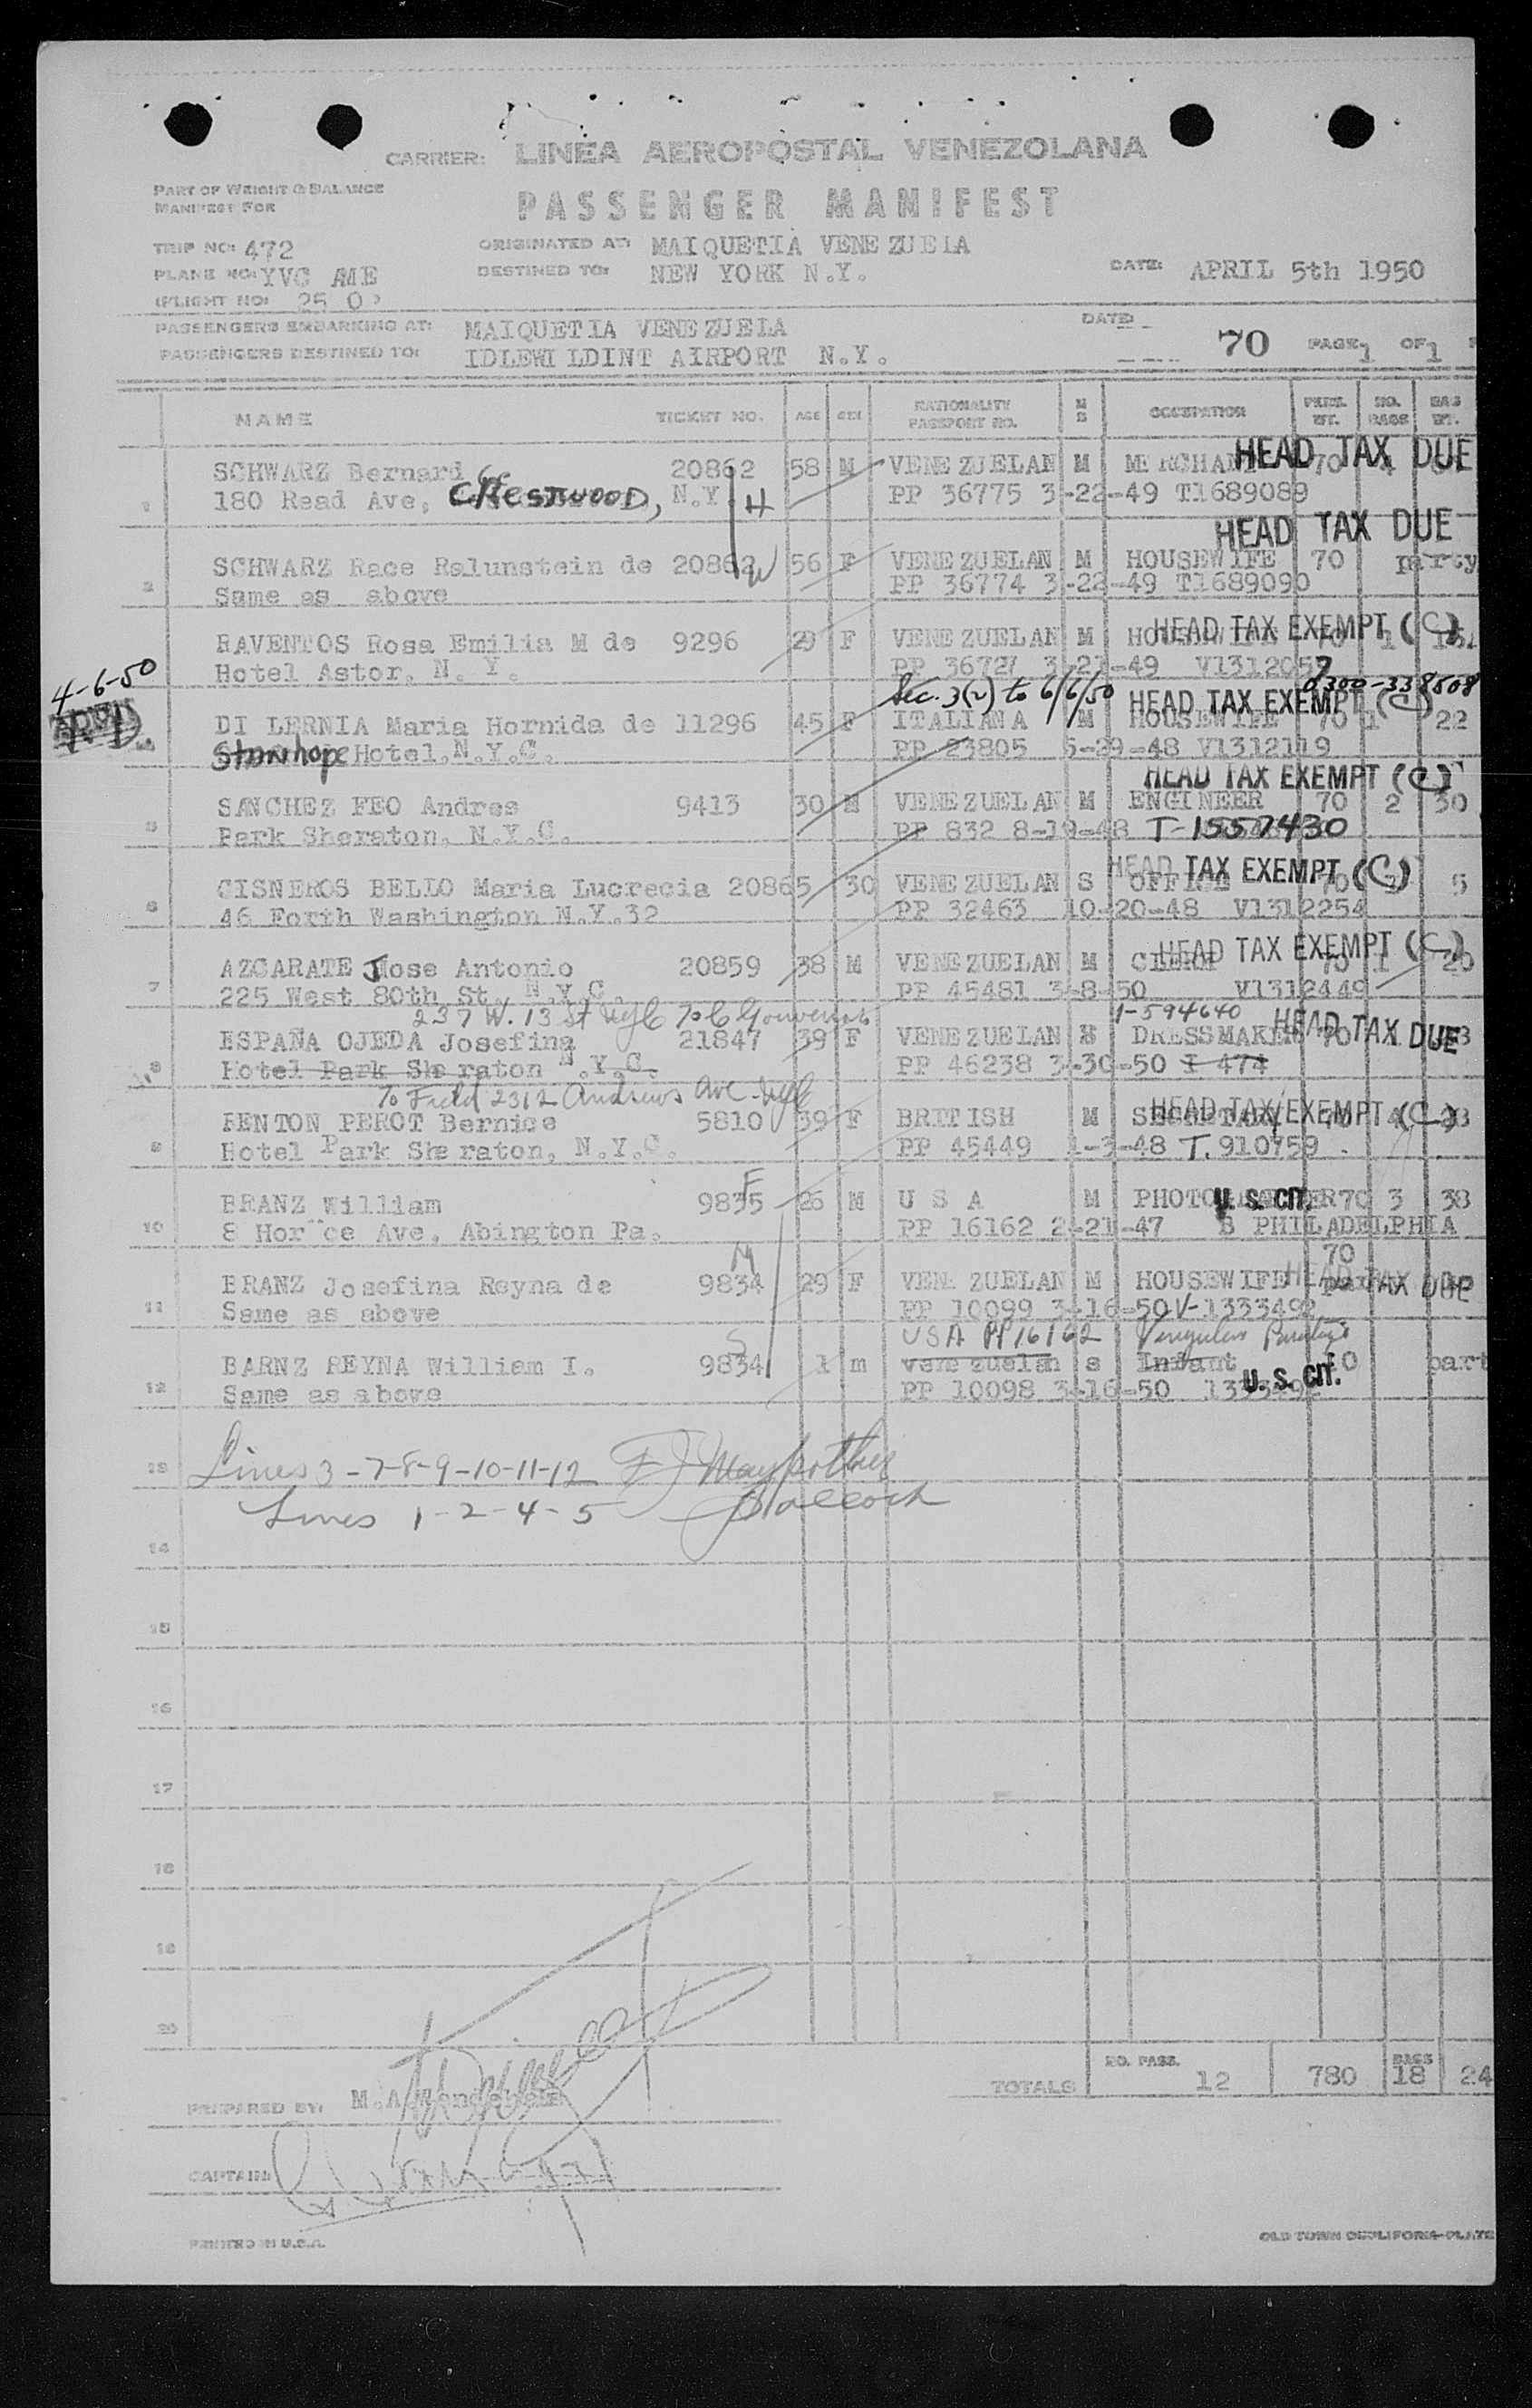 CARRIER: LINEA AEROPOSTAL VENEZOLANA
PART OF WEIGHT & BALANCE
MANIFEST FOR
PASSENGER MANIFEST
TRIP NO: 472
ORIGINATED AT: MAIQUETIA VENEZUELA
PLANE NO: YVC AME
DESTINED TO: NEW YORK N.Y.
DATE: APRIL 5th 1950
(FLIGHT NO: 250)
PASSENGERS EMBARKING AT: MAIQUETIA VENEZUELA
DATE:
PASSENGERS DESTINED TO: IDLEWILDINT AIRPORT N.Y.
70 PAGE 1 OF 1
NAME TICKET NO. AGE SEX NATIONALITY PASSPORT NO. M S OCCUPATION PERS. WT. NO. BAGS BAG WT.
HEAD TAX DUE
SCHWARZ Bernard 20862 58 M VENEZUELAN M MERCHANT 70
1 180 Read Ave, CRESTWOOD, N.Y. H PP 36775 3-22-49 T1689089
HEAD TAX DUE
SCHWARZ Race Ralunstein de 20862 W 56 F VENEZUELAN M HOUSEWIFE 70 party
2 Same as above PP 36774 3-22-49 T1689090
HEAD TAX EXEMPT (C)
RAVENTOS Rosa Emilia M de 9296 29 F VENEZUELAN M HOUSEWIFE 70 1
Hotel Astor, N. Y. PP 36727 3-21-49 V1312057
4-6-50
Sec. 3(2) to 6/6/50 0300-338508
HEAD TAX EXEMPT (C)
DI LERNIA Maria Hornida de 11296 45 F ITALIANA M HOUSEWIFE 70 1 22
Stanhope Hotel, N.Y.C. PP 23805 5-29-48 V1312119
HEAD TAX EXEMPT (C)
SANCHEZ FEO Andres 9413 30 M VENEZUELAN M ENGINEER 70 2 30
5 Park Sheraton, N.Y.C. PP 832 8-19-48 T-1557430
HEAD TAX EXEMPT (C)
CISNEROS BELLO Maria Lucrecia 20865 30 VENEZUELAN S OFFICE 70 5
6 46 Forth Washington N.Y.32 PP 32463 10-20-48 V1312254
HEAD TAX EXEMPT (C)
AZCARATE Jose Antonio 20859 38 M VENEZUELAN M CLERK 70 1 20
7 225 West 80th St. N.Y.C. PP 45481 3-8-50 V1312449
237 W. 13 St NYC
1-594640 HEAD TAX DUE
ESPAÑA OJEDA Josefina 21847 39 F VENEZUELAN DRESSMAKER 70
8 Hotel Park Sheraton N.Y.C. PP 46238 3-30-50 I 474
To Field 2312 Andrews Ave NYC
HEAD TAX EXEMPT (C)
BENTON PEROT Bernice 5810 39 F BRITISH M SECRETARY
9 Hotel Park Sheraton, N.Y.C. PP 45449 1-3-48 T. 910759
F
BRANZ William 9835 26 M U S A M PHOTOGRAPHER 70 3 38
U. S. CIT.
10 8 Horace Ave, Abington Pa. PP 16162 2-21-47 B PHILADELPHIA
M 70
BRANZ Josefina Reyna de 9834 29 F VENEZUELAN M HOUSEWIFE
HEAD TAX DUE
11 Same as above PP 10099 3-16-50 V-1333492
USA PP 16162
S
BARNZ REYNA William I. 9834 1 m venezuelan s Infant part
U. S. CIT.
12 Same as above PP 10098 3-16-50
13 Lines 3-7-8-9-10-11-12
Lines 1-2-4-5
14
15
16
17
18
19
20
TOTALS NO. PASS. 12 780 BAGS 18 24
PREPARED BY:
CAPTAIN:
PRINTED IN U.S.A.
OLD TOWN DUPLIFORM-PLATE